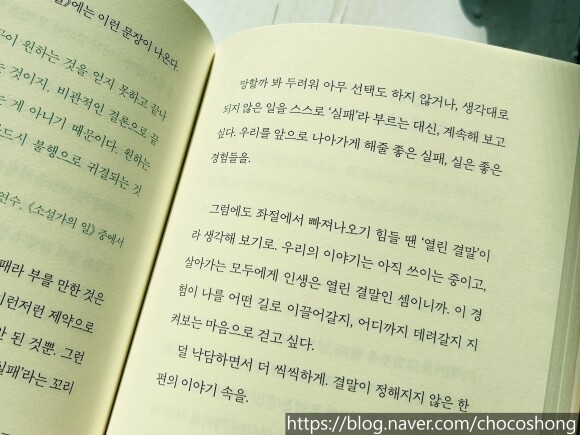 》에는 이런 문장이 나온다.
이 원하는 것을 얻지 못하고 끝나
는 것이지, 비관적인 결론으로 끝
는 게 아니기 때문이다. 원하는
드시 불행으로 귀결되는 것
연수, 《소설가의 일》 중에서
패라 부를 만한 것은
이런저런 제약으로
안 된 것뿐. 그런
실패'라는 꼬리
망할까 봐 두려워 아무 선택도 하지 않거나, 생각대로
되지 않은 일을 스스로 '실패'라 부르는 대신, 계속해 보고
싶다. 우리를 앞으로 나아가게 해줄 좋은 실패, 실은 좋은
경험들을.
그럼에도 좌절에서 빠져나오기 힘들 땐 '열린 결말'이
라 생각해 보기로. 우리의 이야기는 아직 쓰이는 중이고,
살아가는 모두에게 인생은 열린 결말인 셈이니까. 이 경
험이 나를 어떤 길로 이끌어갈지, 어디까지 데려갈지 지
켜보는 마음으로 걷고 싶다.
덜 낙담하면서 더 씩씩하게. 결말이 정해지지 않은 한
편의 이야기 속을.
https://blog.naver.com/chocoshong